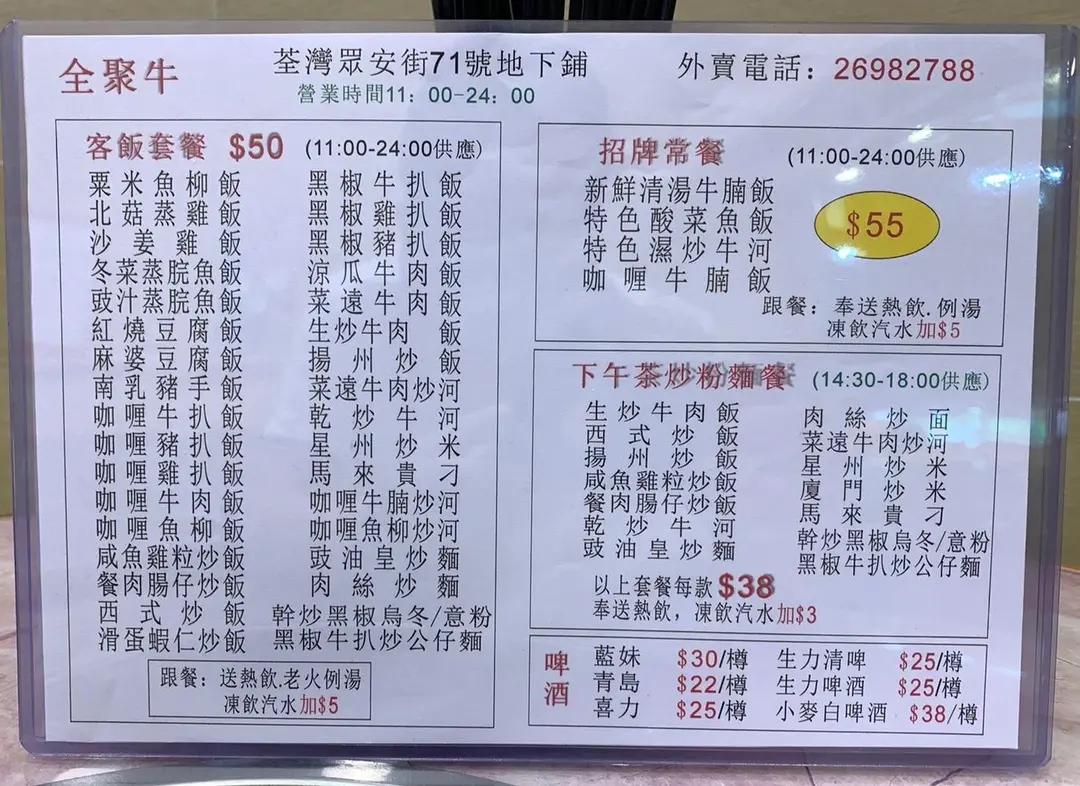 全聚牛
荃灣眾安街71號地下鋪
外賣電話：26982788
營業時間11：00-24：00
客飯套餐 $50 (11:00-24:00供應)
粟米魚柳飯
北菇蒸雞飯
沙姜雞飯
冬菜蒸脘魚飯
豉汁蒸脘魚飯
紅燒豆腐飯
麻婆豆腐飯
南乳豬手飯
咖喱牛扒飯
咖喱豬扒飯
咖喱雞扒飯
咖喱牛肉飯
咖喱魚柳飯
咸魚雞粒炒飯
餐肉腸仔炒飯
西式炒飯
滑蛋蝦仁炒飯
黑椒牛扒飯
黑椒雞扒飯
黑椒豬扒飯
涼瓜牛肉飯
菜遠牛肉飯
生炒牛肉飯
揚州炒飯
菜遠牛肉炒河
乾炒牛河
星州炒米
馬來貴刁
咖喱牛腩炒河
咖喱魚柳炒河
豉油皇炒麵
肉絲炒麵
幹炒黑椒烏冬/意粉
黑椒牛扒炒公仔麵
跟餐：送熱飲.老火例湯
凍飲汽水加$5
招牌常餐 (11:00-24:00供應)
新鮮清湯牛腩飯
特色酸菜魚飯
特色濕炒牛河
咖喱牛腩飯
$55
跟餐：奉送熱飲.例湯
凍飲汽水加$5
下午茶炒粉麵餐 (14:30-18:00供應)
生炒牛肉飯
西式炒飯
揚州炒飯
咸魚雞粒炒飯
餐肉腸仔炒飯
乾炒牛河
豉油皇炒麵
肉絲炒面
菜遠牛肉炒河
星州炒米
廈門炒米
馬來貴刁
幹炒黑椒烏冬/意粉
黑椒牛扒炒公仔麵
以上套餐每款$38
奉送熱飲，凍飲汽水加$3
啤酒
藍妹 $30/樽 生力清啤 $25/樽
青島 $22/樽 生力啤酒 $25/樽
喜力 $25/樽 小麥白啤酒 $38/樽